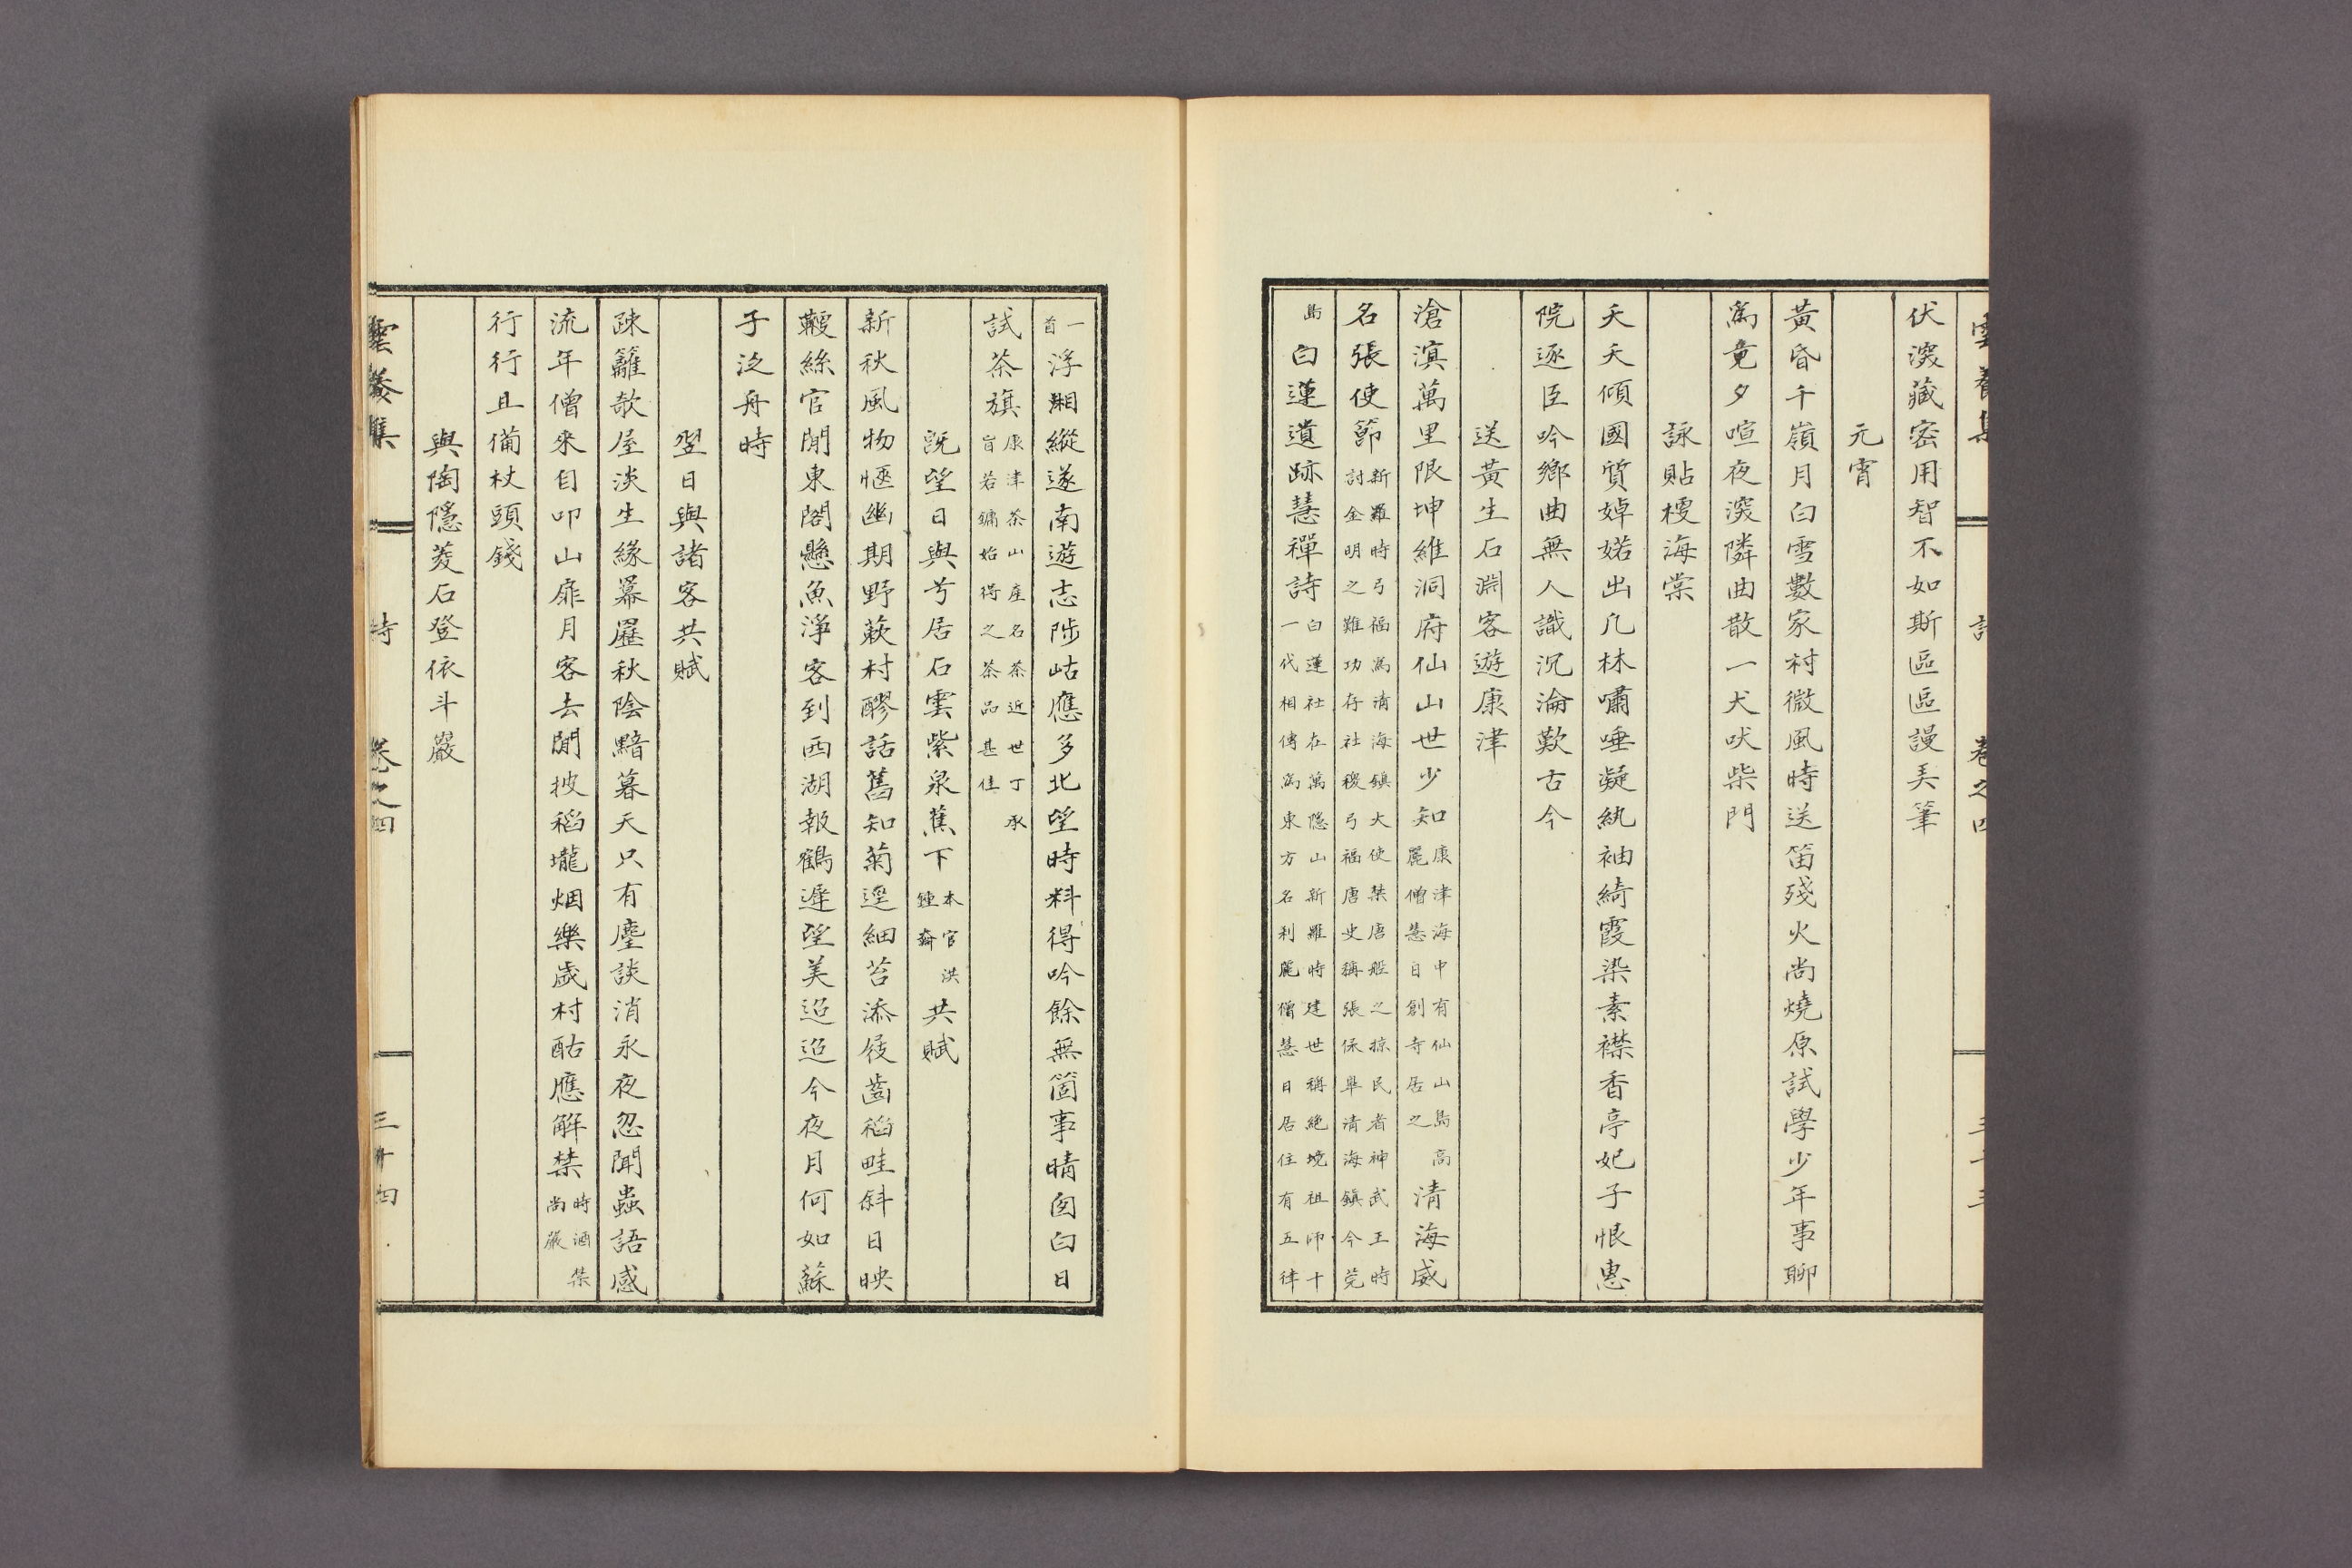 雲養集 詩 卷之四 三十三
伏深藏密用智不如斯區區謾弄筆
元宵
黃昏千嶺月白雪數家村微風時送笛殘火尚燒原試學少年事聊
爲竟夕喧夜深隣曲散一犬吠柴門
詠貼梗海棠
夭夭傾國質婥婼出凡林嘯唾凝紈袖綺霞染素襟香亭妃子恨惠
院逐臣吟鄉曲無人識沉淪歎古今
送黃生石淵客遊康津
滄溟萬里限坤維洞府仙山世少知康津海中有仙山島高麗僧慧日創寺居之淸海威
名張使節新羅時弓福爲淸海鎭大使禁唐船之掠民者神武王時討金明之難功存社稷弓福唐史稱張保皐淸海鎭今莞
島白蓮遺跡慧禪詩白蓮社在萬隱山新羅時建世稱絶境祖師十一代相傳爲東方名刹麗僧慧日居住有五律
一首浮湘縱遂南遊志陟岵應多北望時料得吟餘無箇事晴囱白日
試茶旗康津茶山産名茶近世丁承旨若鏞始得之茶品甚佳
旣望日與芍居石雲紫泉蕉下本官洪鍾奫共賦
新秋風物愜幽期野蔌村醪話舊知菊逕細苔添屐齒稻畦斜日映
鞍絲官閒東閣懸魚淨客到西湖報鶴遲望美迢迢今夜月何如蘇
子泛舟時
翌日與諸客共賦
疎籬欹屋淡生緣羃䍥秋陰黯暮天只有麈談消永夜忽聞蟲語感
流年僧來自叩山扉月客去閒披稻壠烟樂歲村酤應解禁時酒禁尚嚴
行行且備杖頭錢
與陶隱菱石登依斗巖
雲養集 詩 卷之四 三十四